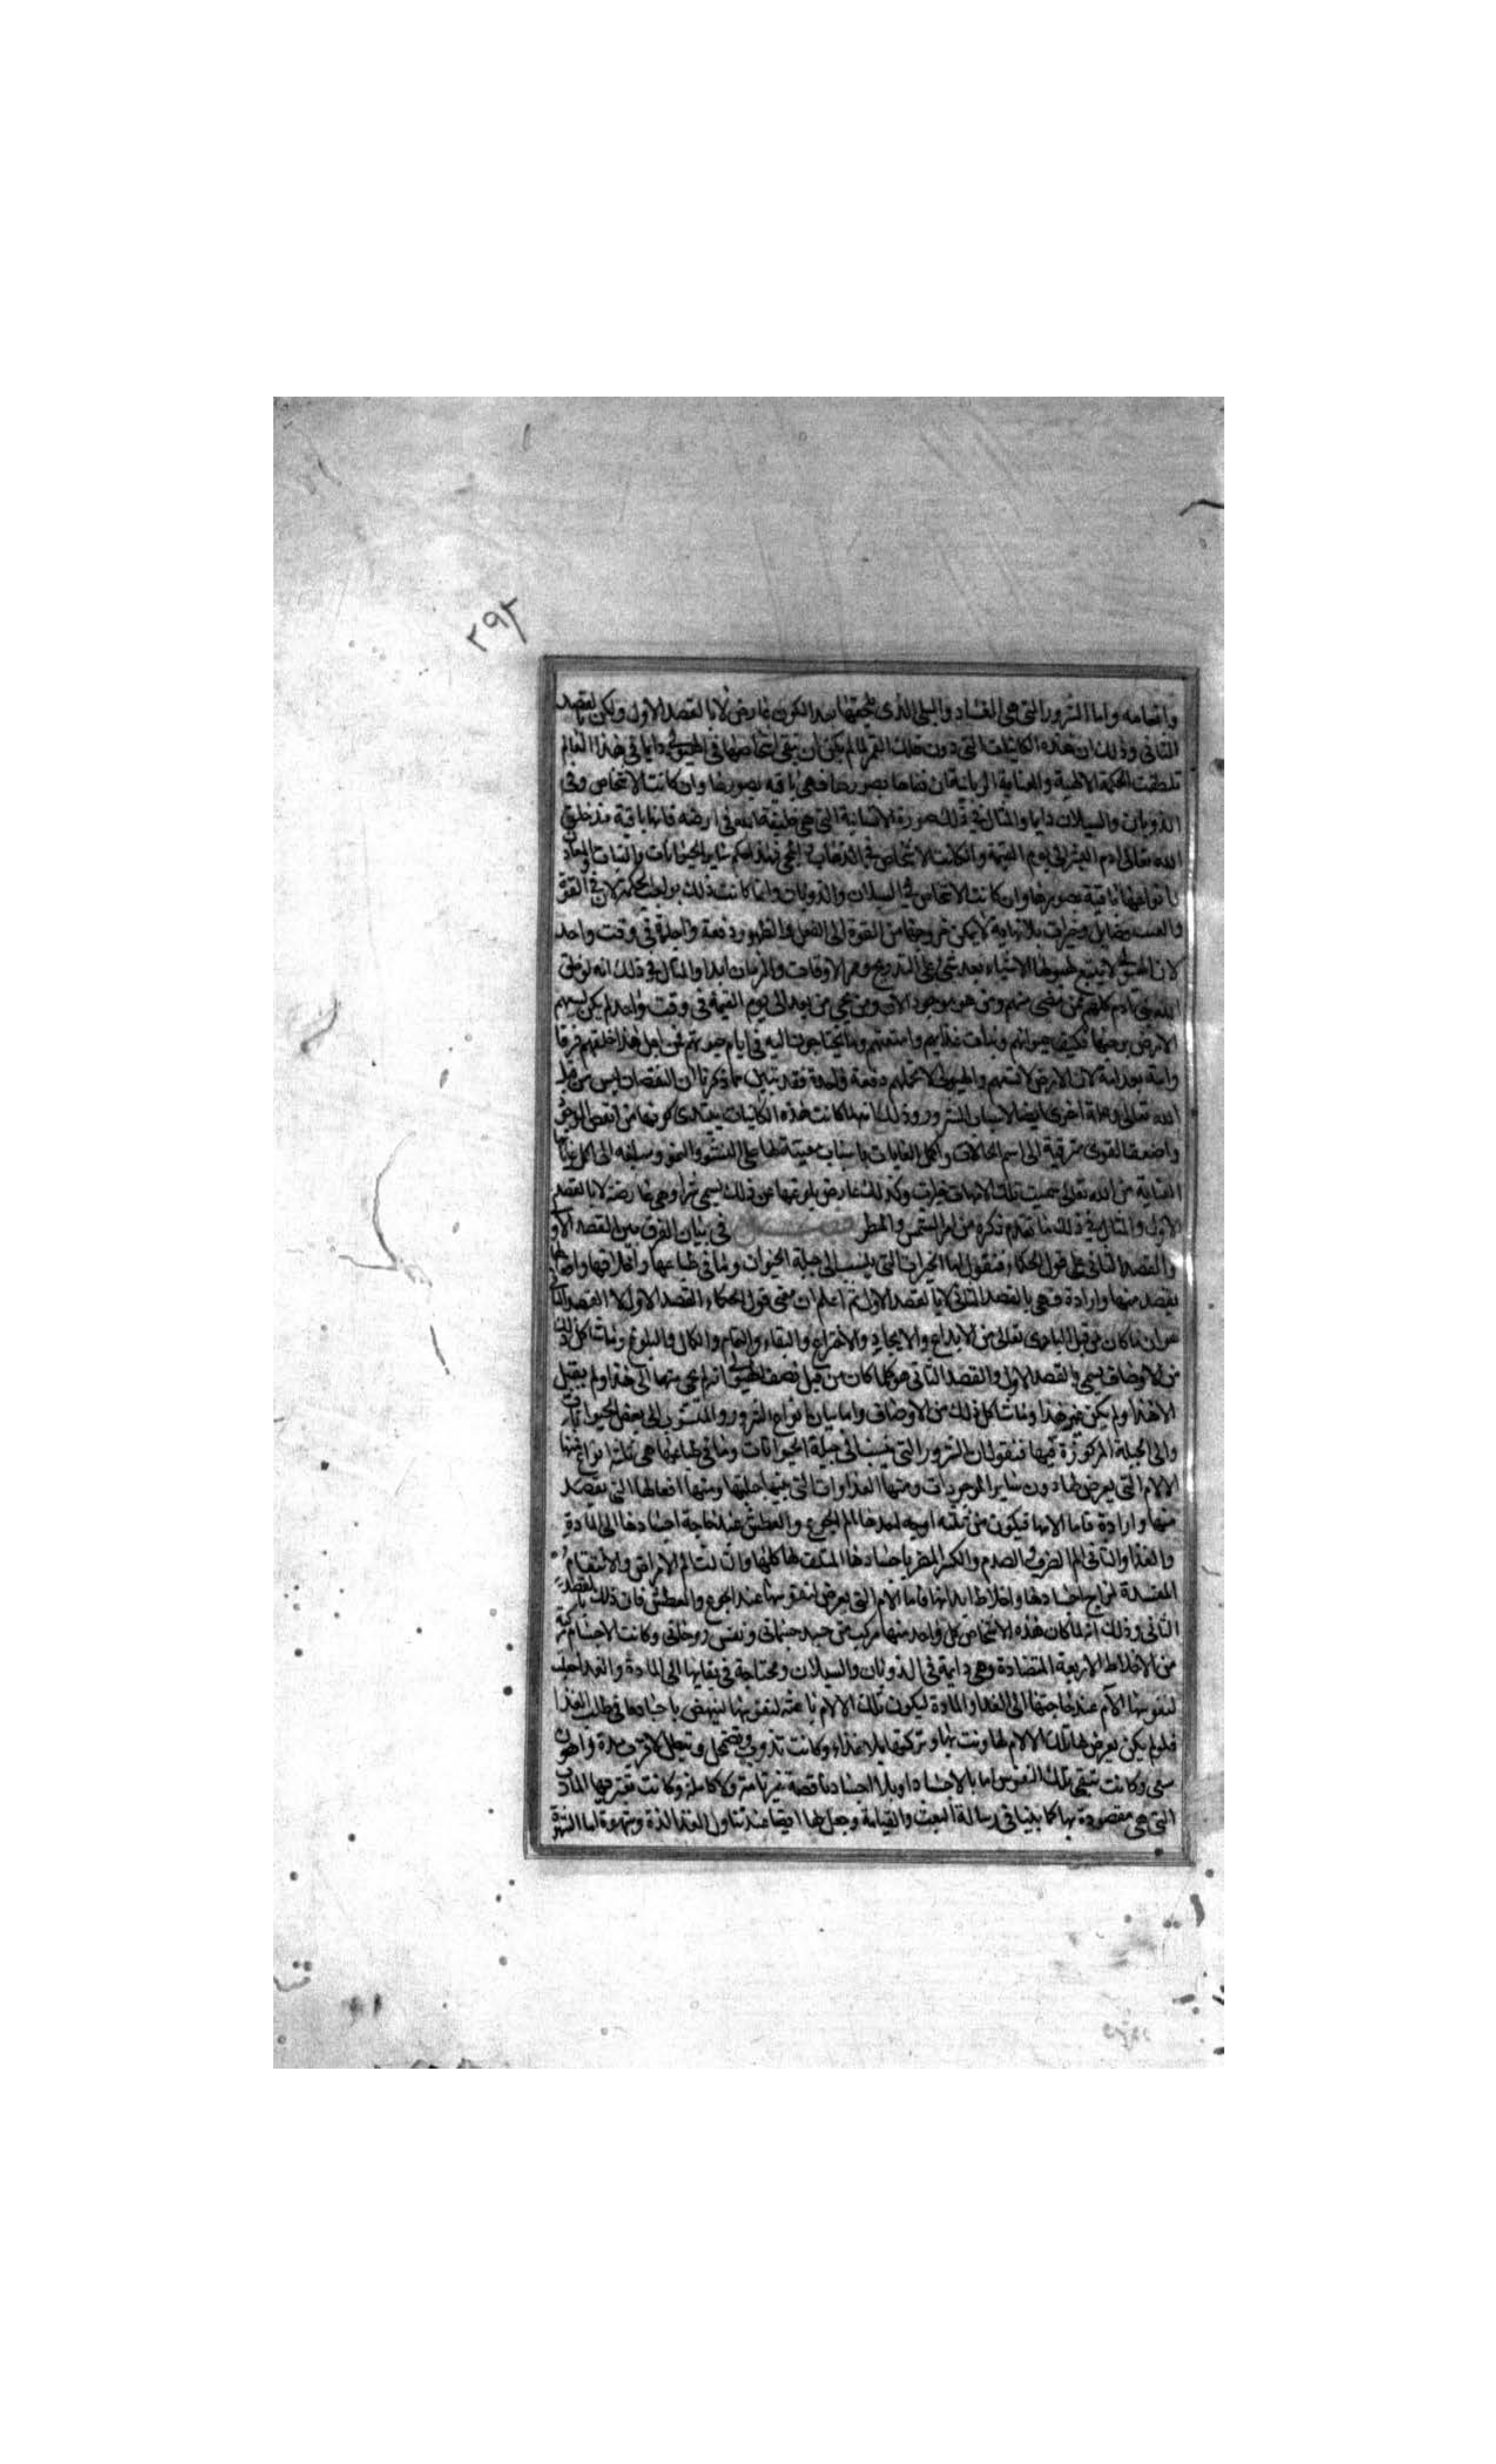 ٢٩٢
وانعامه واما الشرور التى هى الفساد والبلى الذى يلحقها بعد الكون عارض لا بالقصد الاول ولكن بالقصد
الثانى وذلك ان هذه الكائنات التى دون فلك القمر لما لم يمكن ان تبقى اشخاصها فى الهيولى دايما فى هذا العالم
تلطفت الحكمة الالهية والعناية الربانية بصورها فهى باقية بصورها وان كانت الاشخاص فى
الذوبان والسيلان دايما والمثال فى ذلك صورة الانسانية التى هى خليفة الله فى ارضه فانها باقية مذ خلق
الله تعالى ادم البشر الى يوم القيمة وان كانت الاشخاص فى الذهاب والمجى فهذا حكم ساير الحيوانات والنبات والمعادن
باقية بصورها وان كانت الاشخاص فى السيلان والذوبان وانما كانت ذلك بواجب الحكمة لان فى القوة
فضايل وخيرات بلا نهاية لا يمكن خروجها من القوة الى الفعل والظهور دفعة واحدة فى وقت واحد
لان الهيولى لا يتسع لها الا شيئا بعد شئ على التدريج وممر الاوقات والزمان ابدا والمثال فى ذلك انه لو خلق
الله بنى ادم كلهم من مضى منهم ومن هو موجود الان ومن يجى من بعد الى يوم القيمة فى وقت واحد لم يكن تسعهم
الارض برحبها فكيف حيوانهم ونبات غذايهم وامتعتهم وما يحتاجون اليه فى ايام حيوتهم فمن اجل هذا خلقهم قرنا
وامة بعد امة لان الارض لا تسعهم والهيولى لا تحملهم دفعة واحدة فقد تبين بما ذكرنا ان النقصان ليس من قبل
الله تعالى وعلة اخرى ايضا لاسباب الشرور وذلك انه لما كانت هذه الكائنات يبتدى كونها من انقص الوجوه
واضعف القوى مترقية الى اتم الحالات واكمل الغايات باسباب معينة لها على النشو والنمو ومبلغة الى اكمل غاياتها
العناية من الله تعالى سميت تلك الاسباب خيرات وكذلك عارض بلوغها عن ذلك يسمى شرا وهى عارضة لا بالقصد
الاول والمثال فى ذلك ما تقدم ذكره من امر الشمس والمطر فصل فى بيان الفرق بين القصد الاول
والقصد الثانى على قول الحكماء فنقول اما الخيرات التى ينسب الى جبلة الحيوان وما فى طباعها واخلاقها وافعالها
بقصد منها وارادة فهى بالقصد الثانى لا بالقصد الاول ثم اعلم ان معنى قول الحكماء القصد الاول لا القصد الثانى
هو ان ما كان من قبل البارى تعالى من الابداع والايجاد والاختراع والبقاء والتمام والكمال والبلوغ وما شاكل ذلك
من الاوصاف يسمى القصد الاول والقصد الثانى هو كلما كان من قبل نقص الهيولى انه لم يجى منها الا هذا ولم يقبل
الا هذا ولم يكن غير هذا وما شاكل ذلك من الاوصاف واما بيان انواع الشرور والمنسوب الى بعض الحيوانات
والى الجبلة المركوزة فيها فنقول ان الشرور التى ينسب الى جبلة الحيوانات وما فى طباعها هى ثلثة انواع منها
الالام التى يعرض لها دون ساير الموجودات ومنها العداوات التى بينها جبلتها ومنها افعالها التى بقصد
منها وارادة فاما الامها فيكون من ثلثة اوجه احدها الم الجوع والعطش عند حاجة اجسادها الى المادة
والغذا والثانى الم الضرب والصدم والكسر المضر باجسادها المتلف لها كلها والثالث الم الامراض والاسقام
المفسدة لمزاج اجسادها واخلاط ابدانها فاما الالام التى يعرض لنفوسها عند الجوع والعطش فان ذلك بالقصد
الثانى وذلك انه لما كان هذه الاشخاص كل واحد منها مركب من جسد جسمانى ونفس روحانى وكانت الاجسام مركبة
من الاخلاط الاربعة المتضادة وهى دايمة فى الذوبان والسيلان ومحتاجة فى بقائها الى المادة والغذا جعلت
لنفوسها الالام عند حاجتها الى الغذا والمادة ليكون تلك الالام باعثة لنفوسها لينهض باجسادها فى طلب الغذا
فلو لم يكن يعرض لها تلك الالام لتهاونت بها وتركتها بلا غذاء وكانت تذوب وتضمحل وتبطل لاقرب مدة واهون
سعى وكانت تبقى تلك النفوس اما بالاجساد او بلا اجساد ناقصة غير تامة ولا كاملة وكانت
التى هى مقصودة بها كما بينا فى رسالة البعث والقيامة وجعل لها ايضا عند تناول الغذا لذة وشهوة اما الشهوة